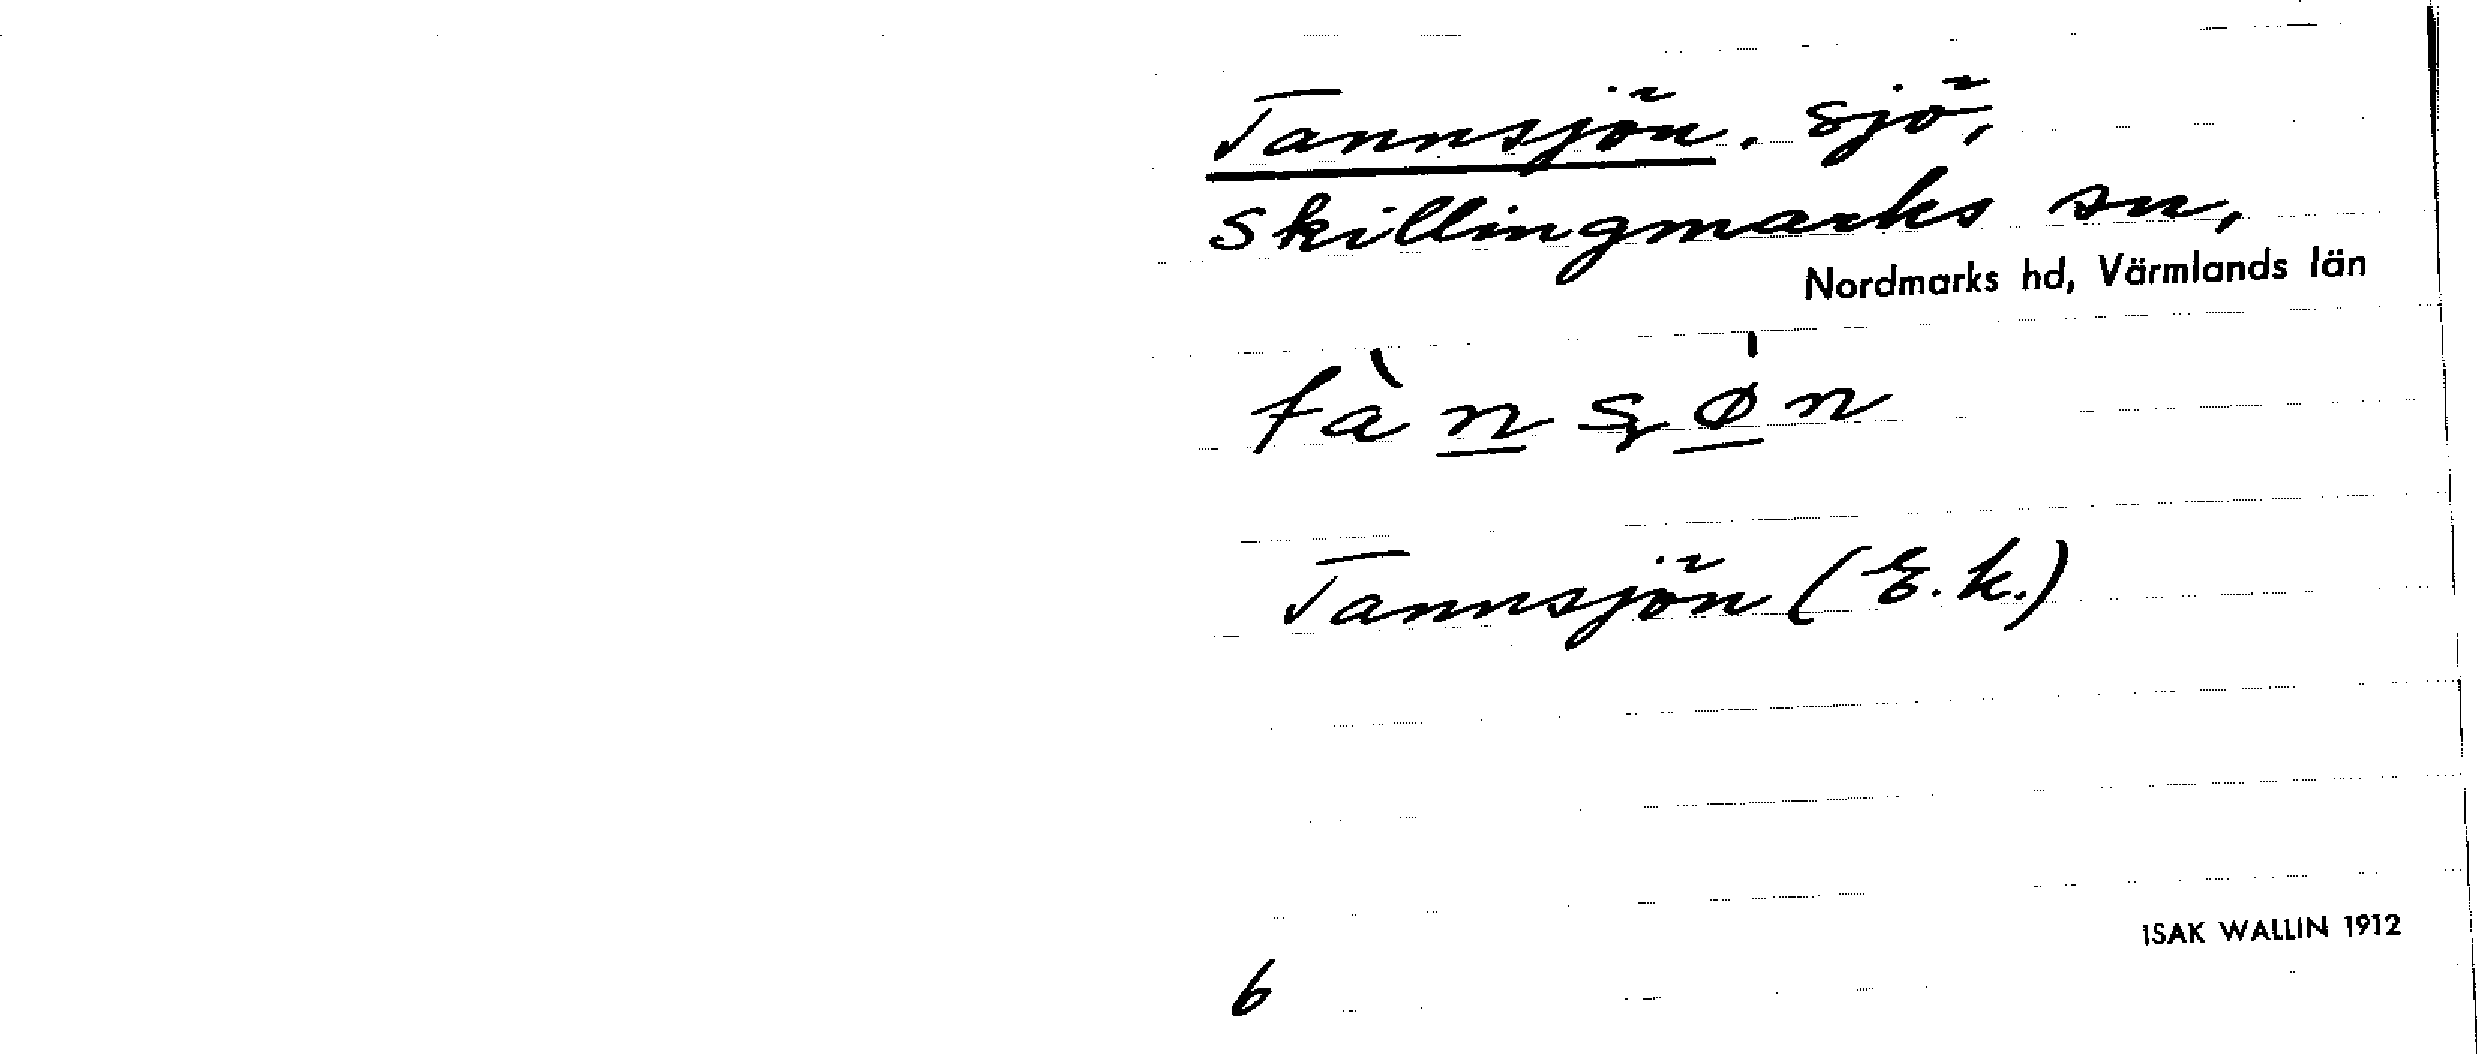 Tannsjön. sjö,
Skillingmarks sn,
Nordmarks hd, Värmlands län
tàn̲ʂø̲̍n
Tannsjön (E.k.)
ISAK WALLIN 1912
6